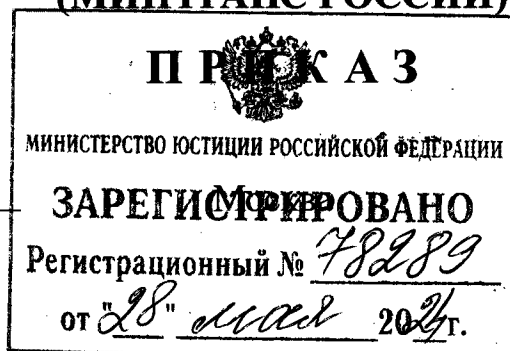 (МИНТРАНС РОССИИ)
ПРИКАЗ
МИНИСТЕРСТВО ЮСТИЦИИ РОССИЙСКОЙ ФЕДЕРАЦИИ
Москва
ЗАРЕГИСТРИРОВАНО
Регистрационный № 78289
от "28" мая 2024г.